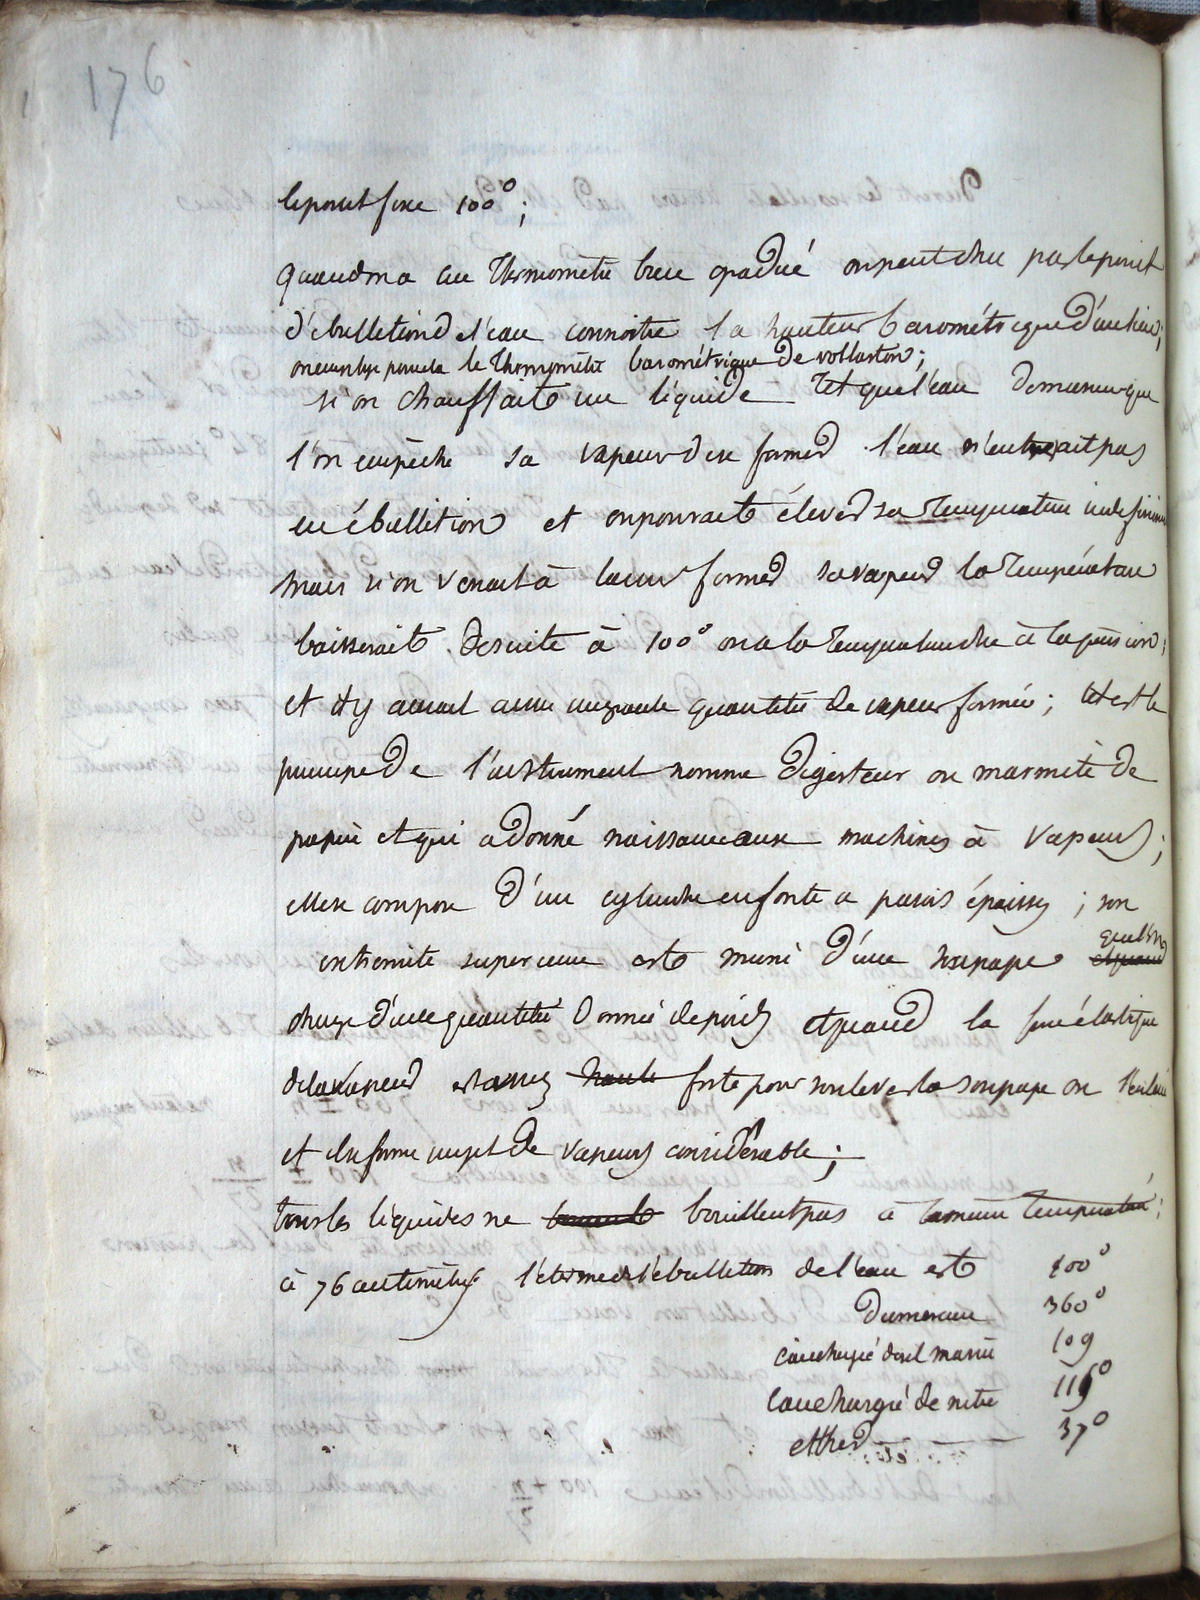 176
le point fixe 100°;
quand on a un thermometre bien gradué on peut dire par le point
d'ébullition de l'eau connoitre la hauteur barométrique d'un lieu;
le thermometre barométrique de vollaston;
si on chauffait un liquide tel que l'eau de maniere que
l'on empèche sa vapeur de se former l'eau n'entrerait pas
en ébullition et on pourrait élever sa temperature indefinim
mais si on venait à laisser former sa vapeur la température
baisserait de suite à 100° on a la temperature due à la pression;
et il y aurait une grande quantité de vapeur formée; tel est le
principe de l'instrument nommé digesteur ou marmite de
papin et qui a donné naissance aux machines à vapeurs;
elle se compose d'un cylindre en fonte a parois épaisses; son
extremité superieure est muni d'une soupape
charge d'une quantité donnée de poids et quand la force élastique
de la vapeur est assez haute forte pour soulever la soupape on l'enleve
et il se forme un jet de vapeurs considérable;
tous les liquides ne bouillent pas à la meme temperature;
à 76 centimetres le terme de l'ébullition de l'eau est 100°
du mercure 360°
l'eau chargé de sel marin 109
l'eau chargé de nitre 115°
ether 37°